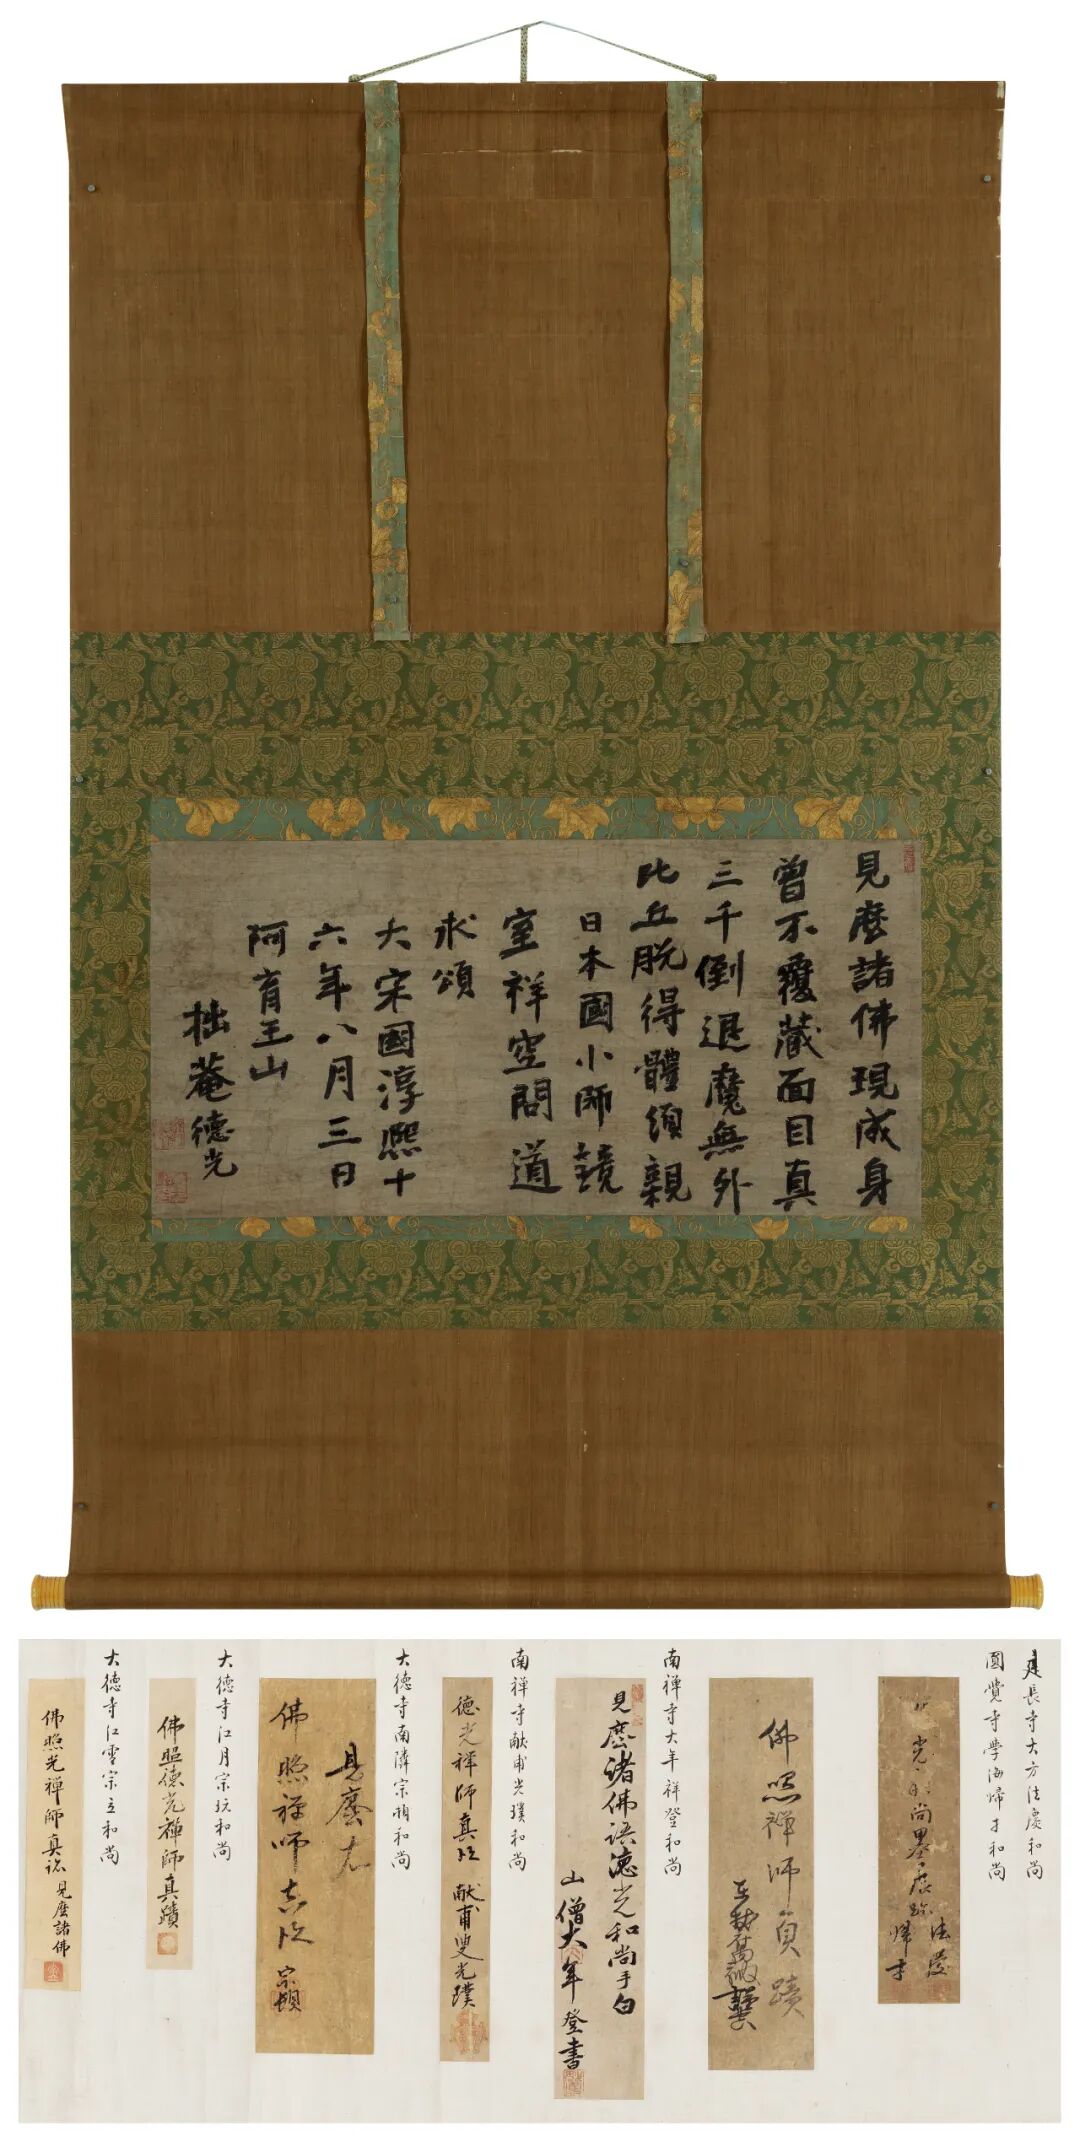 見麼諸佛現成身
曾不覆藏面目真
三千倒退魔無外
比丘脱得體須親
日本國小師鏡
室祥空問道
求頌
大宋國淳熙十
六年八月三日
阿育王山
拙菴德光
建長寺大方法慶和尚
圓覺寺學海帰才和尚
光和尚墨蹟
法慶
帰才
佛照禪師真蹟
南禅寺大年祥登和尚
見麼諸佛語德光和尚手白
山僧大年登書
南禅寺献甫光璞和尚
德光禅師真跡 献甫叟光璞
大德寺南隣宗頓和尚
見麼
佛照禅師真跡 宗頓
大德寺江月宗玩和尚
佛照德光禅師真蹟
大德寺江雪宗立和尚
佛照光禅師真跡 見麼諸佛